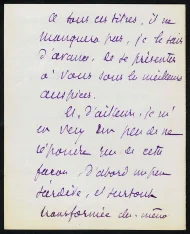 à tous ces titres, il ne
manquera pas, je le sais
d'avance, de se présenter
à vous sous les meilleurs
auspices.
Et, d'ailleurs, je m'
en veux un peu de ne
répondre que de cette
façon, d'abord un peu
tardive, et surtout
transformée de